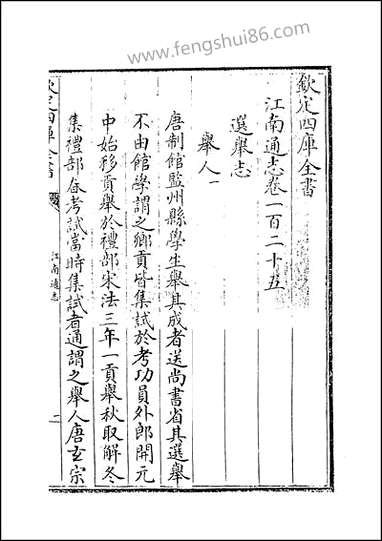 www.fengshui86.com
欽定四庫全書
江南通志卷一百二十五
選舉志
舉人一
唐制館監州縣學生舉其成者送尚書省其選舉
不由館學謂之鄉貢皆集試於考功員外郎開元
中始移貢舉於禮部宋法三年一貢舉秋取解冬
集禮部春考試當時集試者通謂之舉人唐玄宗
欽定四庫全書
江南通志